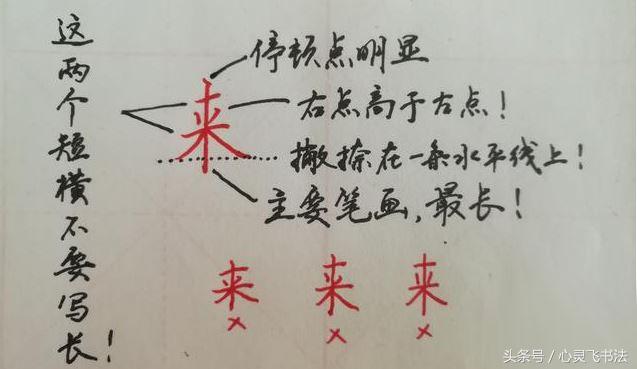 这两个短横不要写长！
来
停顿点明显
右点高于左点！
撇捺在一条水平线上！
主要笔画，最长！
来 来 来
× × ×
头条号／心灵飞书法